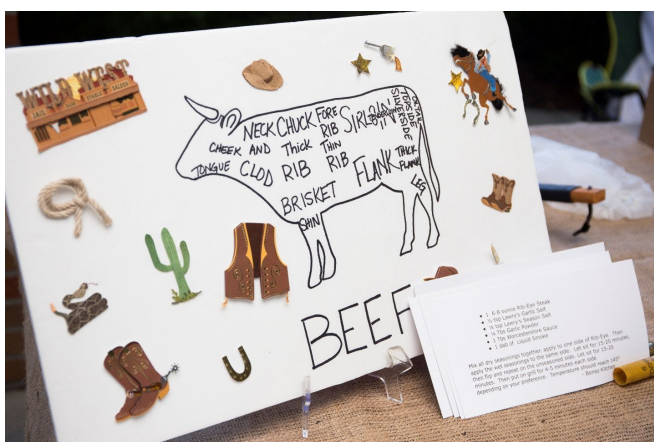 WILD WEST
JAIL
STABLE
SALOON
NECK
CHUCK
FORE
RIB
SIRLOIN
TOPSIDE
SILVERSIDE
CHEEK AND
TONGUE
CLOD
Thick
RIB
THIN
RIB
FLANK
THICK
FLANK
LEG
BRISKET
SHIN
BEEF
1 6-8 ounce Rib-Eye Steak
½ tsp Lawry's Garlic Salt
¼ tsp Lawry's Season Salt
¼ Tbs Garlic Powder
1 Tbs Worcestershire Sauce
1 dab of Liquid Smoke
Mix all dry seasonings together, apply to one side of Rib-Eye. Then
apply the wet seasonings to the same side. Let sit for 15-20 minutes,
then flip and repeat on the unseasoned side. Let sit for 15-20
minutes. Then put on grill for 4-5 minutes each side
depending on your preference. Temperature should reach 145°
- Boney Kitchen